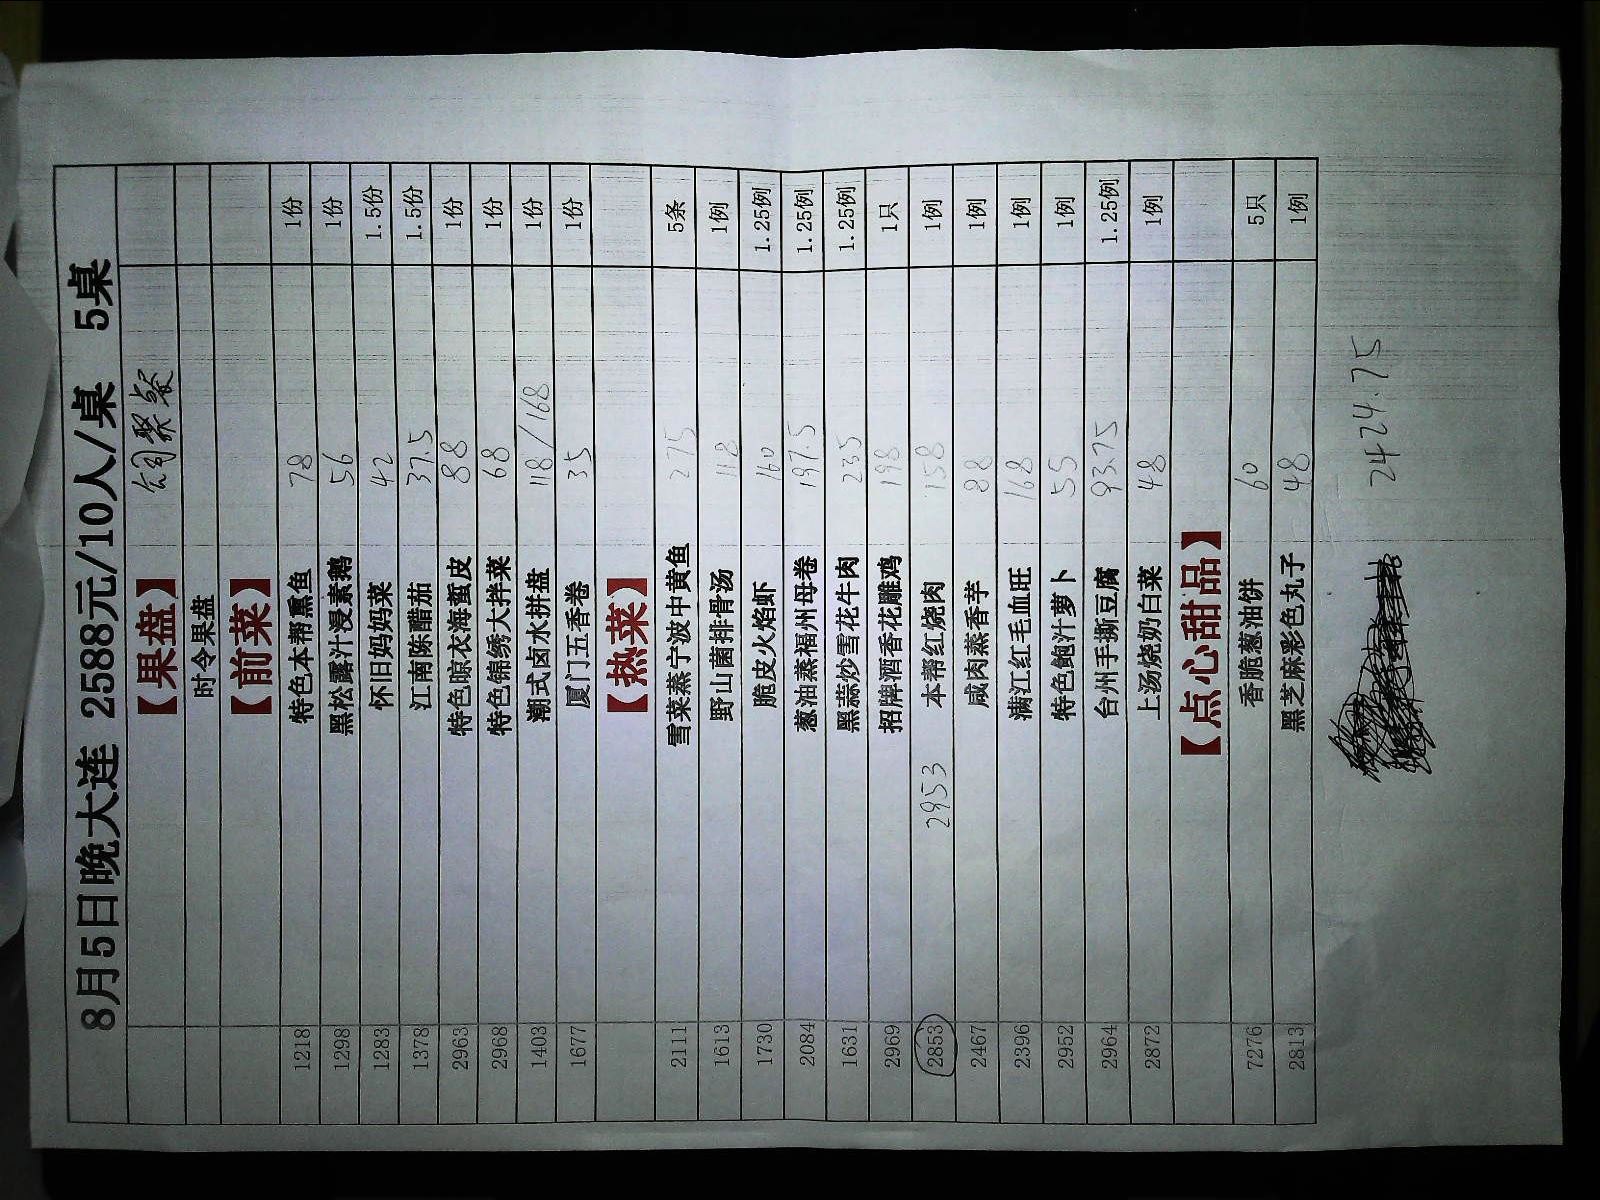 8月5日晚大连 2588元/10人/桌 5桌
【果盘】 公司聚餐
时令果盘
【前菜】
1218 特色本帮熏鱼 78 1份
1298 黑松露汁浸素鹅 56 1份
1283 怀旧妈妈菜 42 1.5份
1378 江南陈醋茄 37.5 1.5份
2963 特色晾衣海蜇皮 88 1份
2968 特色锦绣大拌菜 68 1份
1403 潮式卤水拼盘 118/168 1份
1677 厦门五香卷 35 1份
【热菜】
2111 雪菜蒸宁波中黄鱼 275 5条
1613 野山菌排骨汤 118 1例
1730 脆皮火焰虾 160 1.25例
2084 葱油蒸福州母卷 197.5 1.25例
1631 黑蒜炒雪花牛肉 235 1.25例
2969 招牌酒香花雕鸡 198 1只
2853 2953 本帮红烧肉 158 1例
2467 咸肉蒸香芋 88 1例
2396 满江红毛血旺 168 1例
2952 特色鲍汁萝卜 55 1例
2964 台州手撕豆腐 93.75 1.25例
2872 上汤烧奶白菜 48 1例
【点心甜品】
7276 香脆葱油饼 60 5只
2813 黑芝麻彩色丸子 48 1例
2424.75